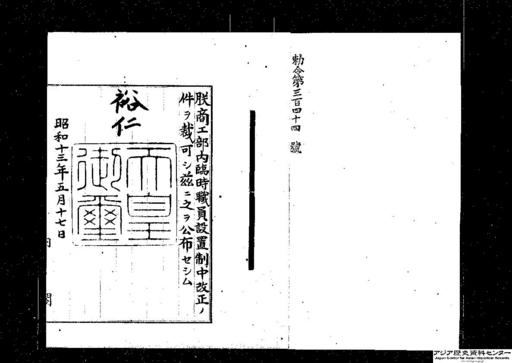 勅令第三百四十四號
朕商工部内臨時職員設置制中改正ノ
件ヲ裁可シ茲ニ之ヲ公布セシム
裕仁
天皇
御璽
昭和十三年五月十七日
内 閣
アジア歴史資料センター
Japan Center for Asian Historical Records